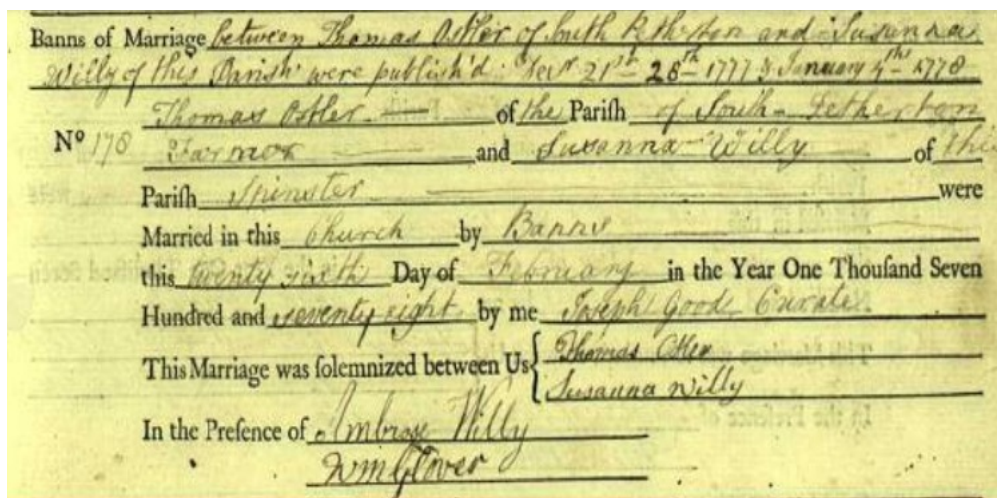 Banns of Marriage between Thomas Ostler of South Petherton and Susanna
Willy of this Parish were publish'd Decr 21st 28th 1777 & January 4th 1778
Thomas Ostler of the Parish of South-Petherton
No 178 Farmor and Susanna Willy of this
Pariſh Spinster were
Married in this Church by Banns
this twenty sixth Day of February in the Year One Thouſand Seven
Hundred and seventy eight by me Joseph Good Curate
This Marriage was ſolemnized between Us { Thomas Ostler
Susanna Willy
In the Preſence of Ambrose Willy
Wm Glover